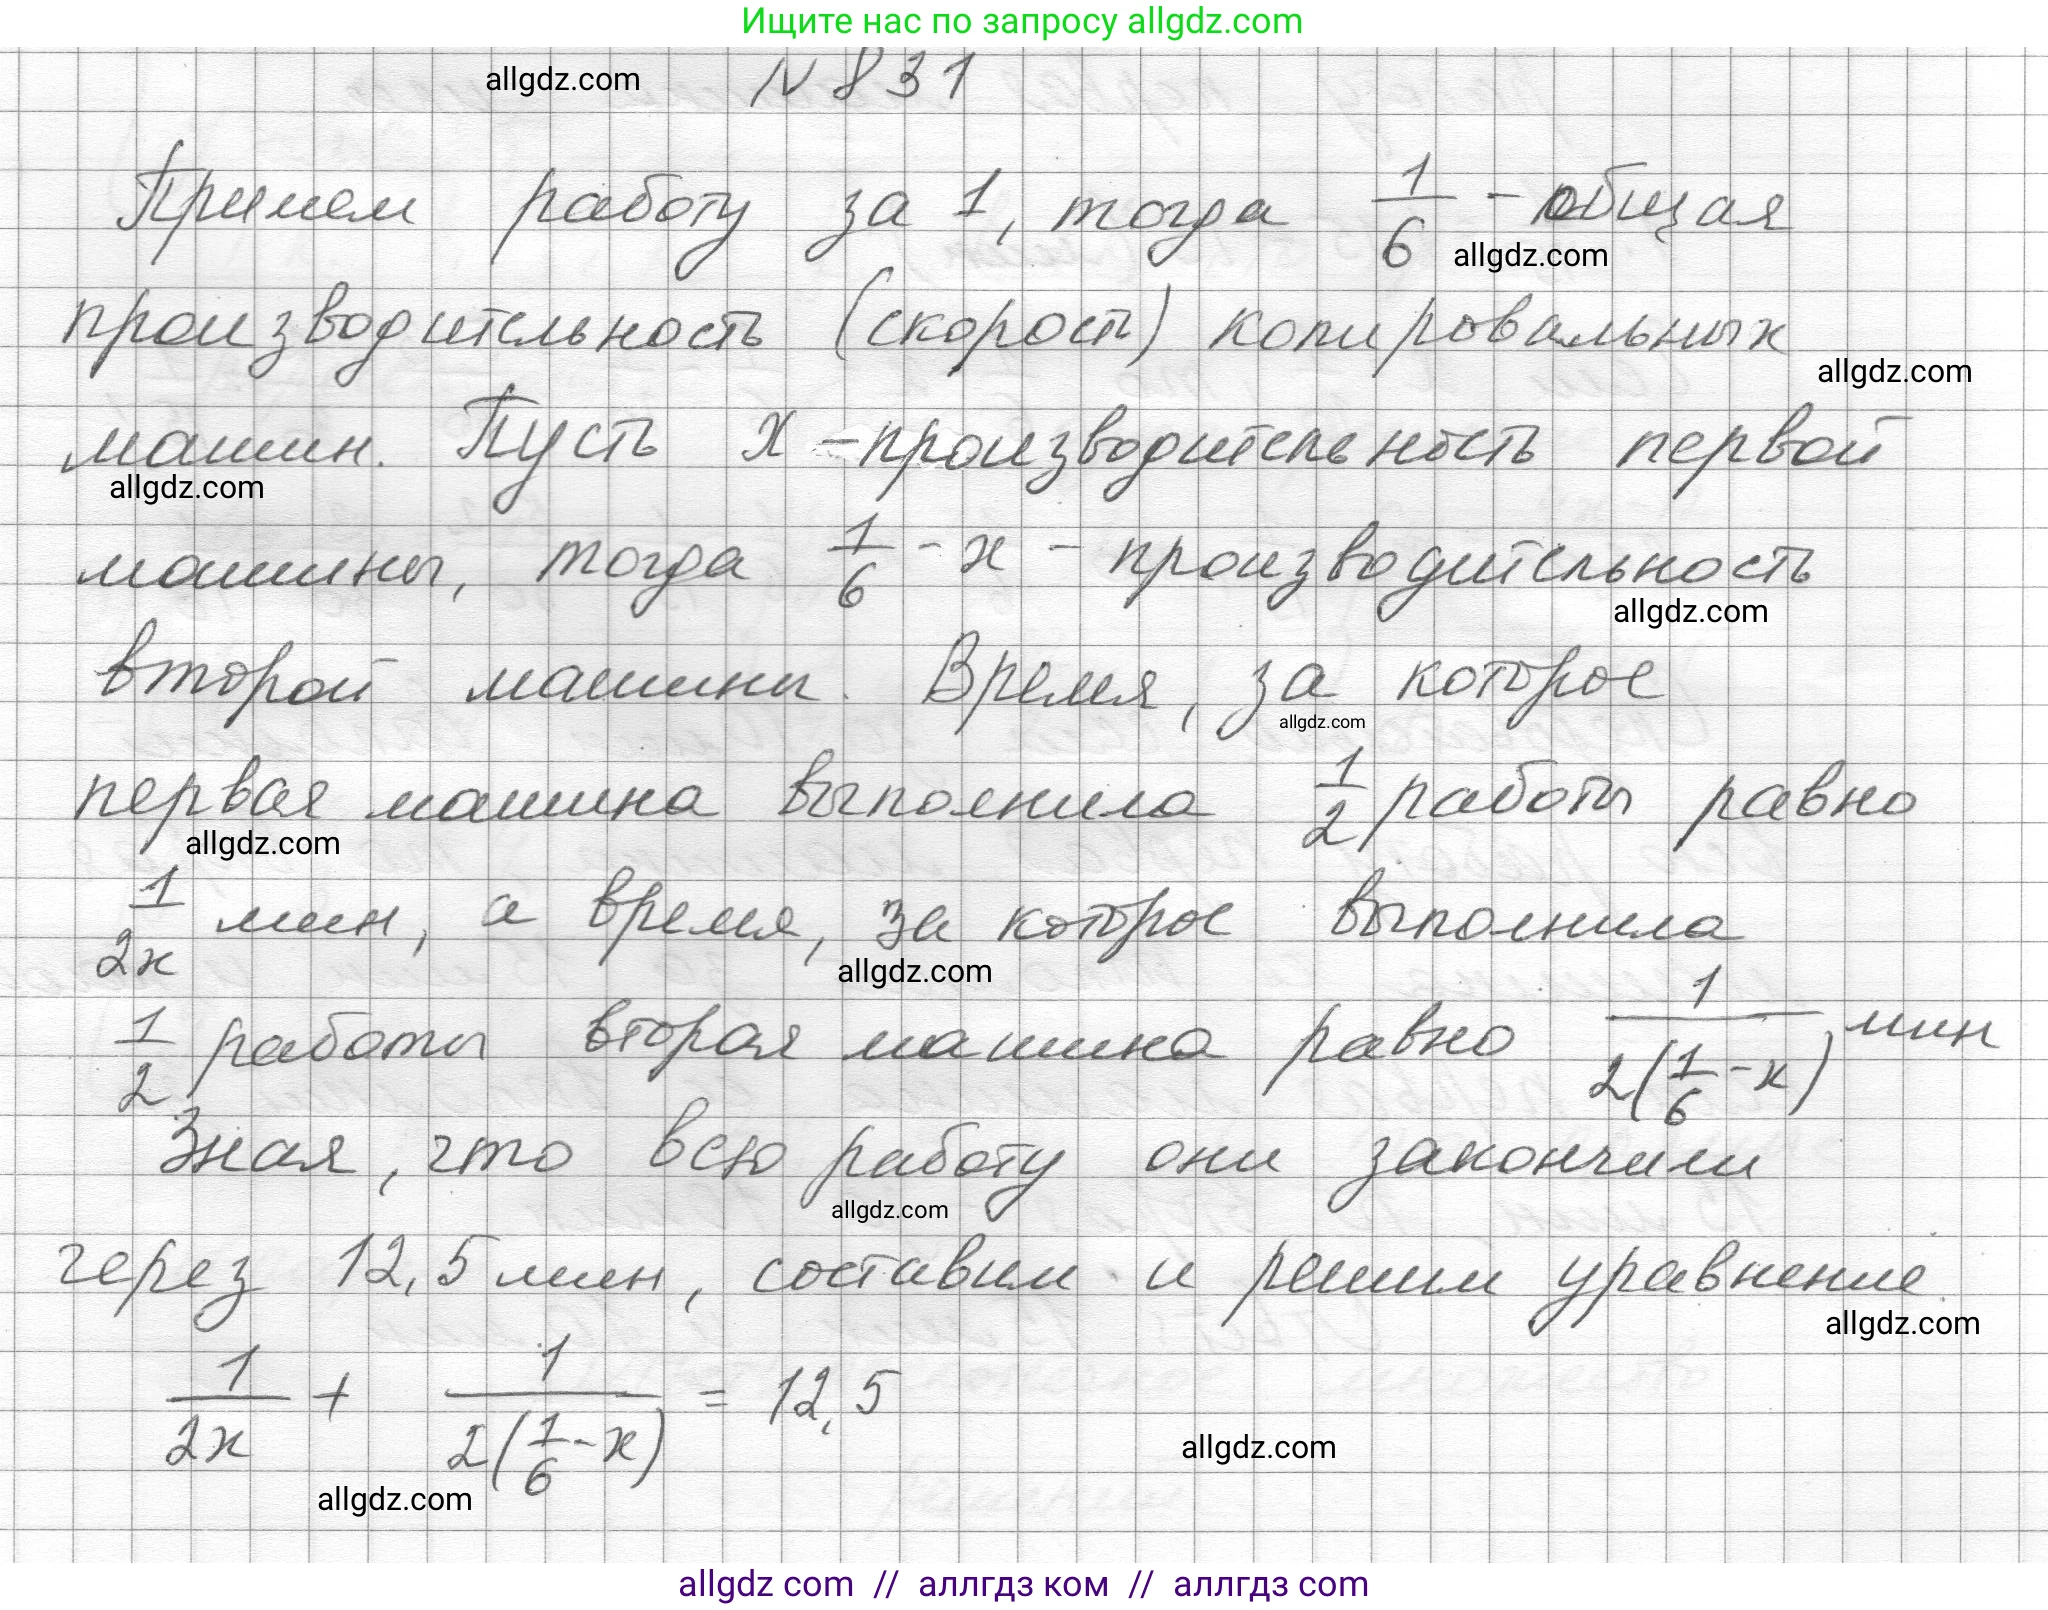 Ищите нас по запросу allgdz.com
allgdz.com N 831
Примем работу за 1, тогда 1/6 - общая
allgdz.com
производительность (скорость) копировальных
allgdz.com
машин. Пусть x - производительность первой
allgdz.com
машины, тогда 1/6 - x - производительность
allgdz.com
второй машины. Время, за которое
allgdz.com
первая машина выполнила 1/2 работы равно
allgdz.com
1/2x мин, а время, за которое выполнила
allgdz.com
1/2 работы вторая машина равно 1/2(1/6 - x) мин
Зная, что всю работу они закончили
allgdz.com
через 12,5 мин, составим и решим уравнение.
allgdz.com
1/2x + 1/2(1/6 - x) = 12,5
allgdz.com
allgdz.com
allgdz com // аллгдз ком // аллгдз com